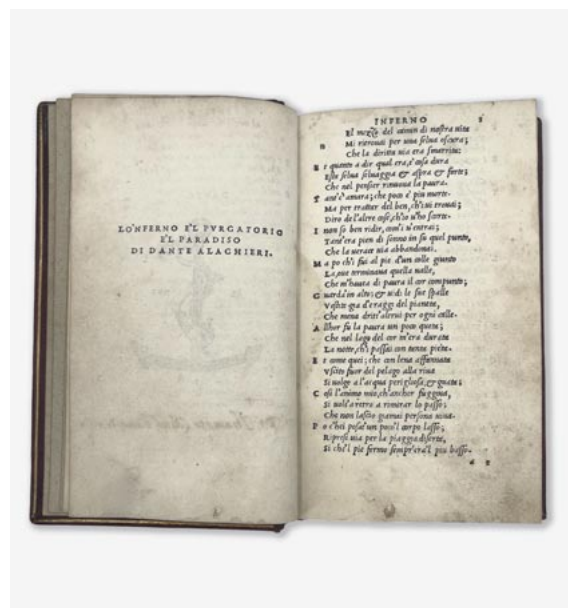 LO'NFERNO E'L PVRGATORIO
E'L PARADISO
DI DANTE ALAGHIERI.
INFERNO
N El mezzo del camin di nostra uita
Mi ritrouai per una selua oscura;
Che la diritta uia era smarrita:
E t quanto a dir qual era, è cosa dura
Esta selua seluaggia et aspra et forte;
Che nel pensier rinoua la paura.
T ant'è amara; che poco è piu morte.
Ma per trattar del ben, ch'i ui trouai;
Diro de l'altre cose, ch'io u'ho scorte.
I non so ben ridir, com'i u'entrai;
Tant'era pien di sonno in su quel punto,
Che la uerace uia abbandonai.
M a po ch'i fui al pie d'un colle giunto
La, oue terminaua quella ualle,
Che m'hauea di paura il cor compunto;
G uarda'in alto; et uidi le sue spalle
Vestite gia d'e raggi del pianeta,
Che mena dritt'altrui per ogni calle.
A llhor fu la paura un poco queta;
Che nel lago del cor m'era durata
La notte, ch'i passai con tanta pieta.
E t come quei; che con lena affannata
Vscito fuor del pelago alla riua
Si uolge a l'acqua perigliosa, et guata;
C osi l'animo mio, ch'anchor fuggiua,
Si uols'a retro a rimirar lo passo;
Che non lascio giamai persona uiua.
P o ch'ei posat'un poco'l corpo lasso;
Ripresi uia per la piaggia diserta,
Si che'l pie fermo sempr'era'l piu basso.